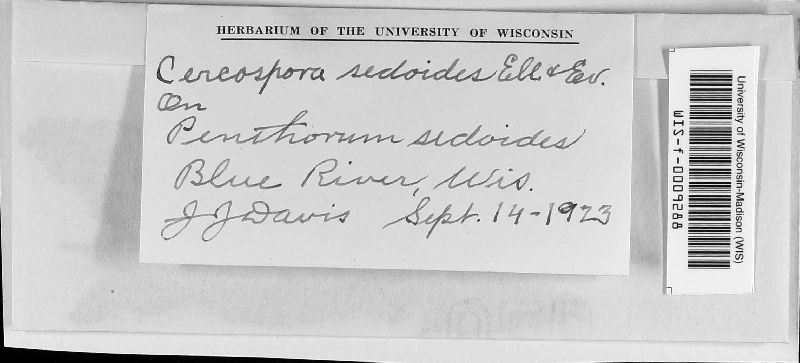 HERBARIUM OF THE UNIVERSITY OF WISCONSIN
Cercospora sedoides Ell. & Ev.
On
Penthorum sedoides
Blue River, Wis.
J J Davis Sept. 14-1923
University of Wisconsin-Madison (WIS)
WIS-f-0009288